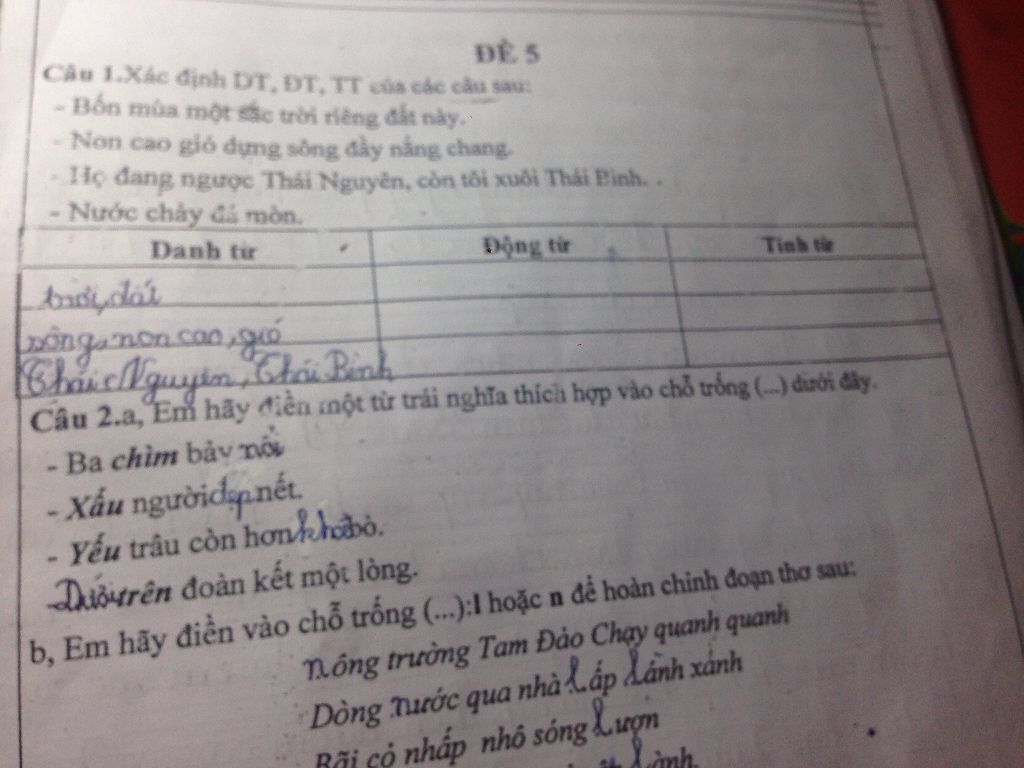 ĐỀ 5
Câu 1.Xác định DT, ĐT, TT của các câu sau:
- Bốn mùa một sắc trời riêng đất này.
- Non cao gió dựng sông đầy nắng chang.
- Họ đang ngược Thái Nguyên, còn tôi xuôi Thái Bình.
- Nước chảy đá mòn.
Danh từ Động từ Tính từ
trời, đất
sông, non cao, gió
Thái Nguyên, Thái Bình
Câu 2.a, Em hãy điền một từ trái nghĩa thích hợp vào chỗ trống (...) dưới đây.
- Ba chìm bảy nổi
- Xấu người đẹp nết.
- Yếu trâu còn hơn khoẻ bò.
- Dưới trên đoàn kết một lòng.
b, Em hãy điền vào chỗ trống (...):l hoặc n để hoàn chỉnh đoạn thơ sau:
Nông trường Tam Đảo Chạy quanh quanh
Dòng nước qua nhà lấp lánh xánh
Bãi cỏ nhấp nhô sóng lượn
lành.